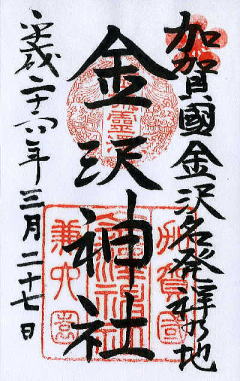 加賀國金沢名発祥の地
金沢神社
平成二十六年三月二十七日
兼六園